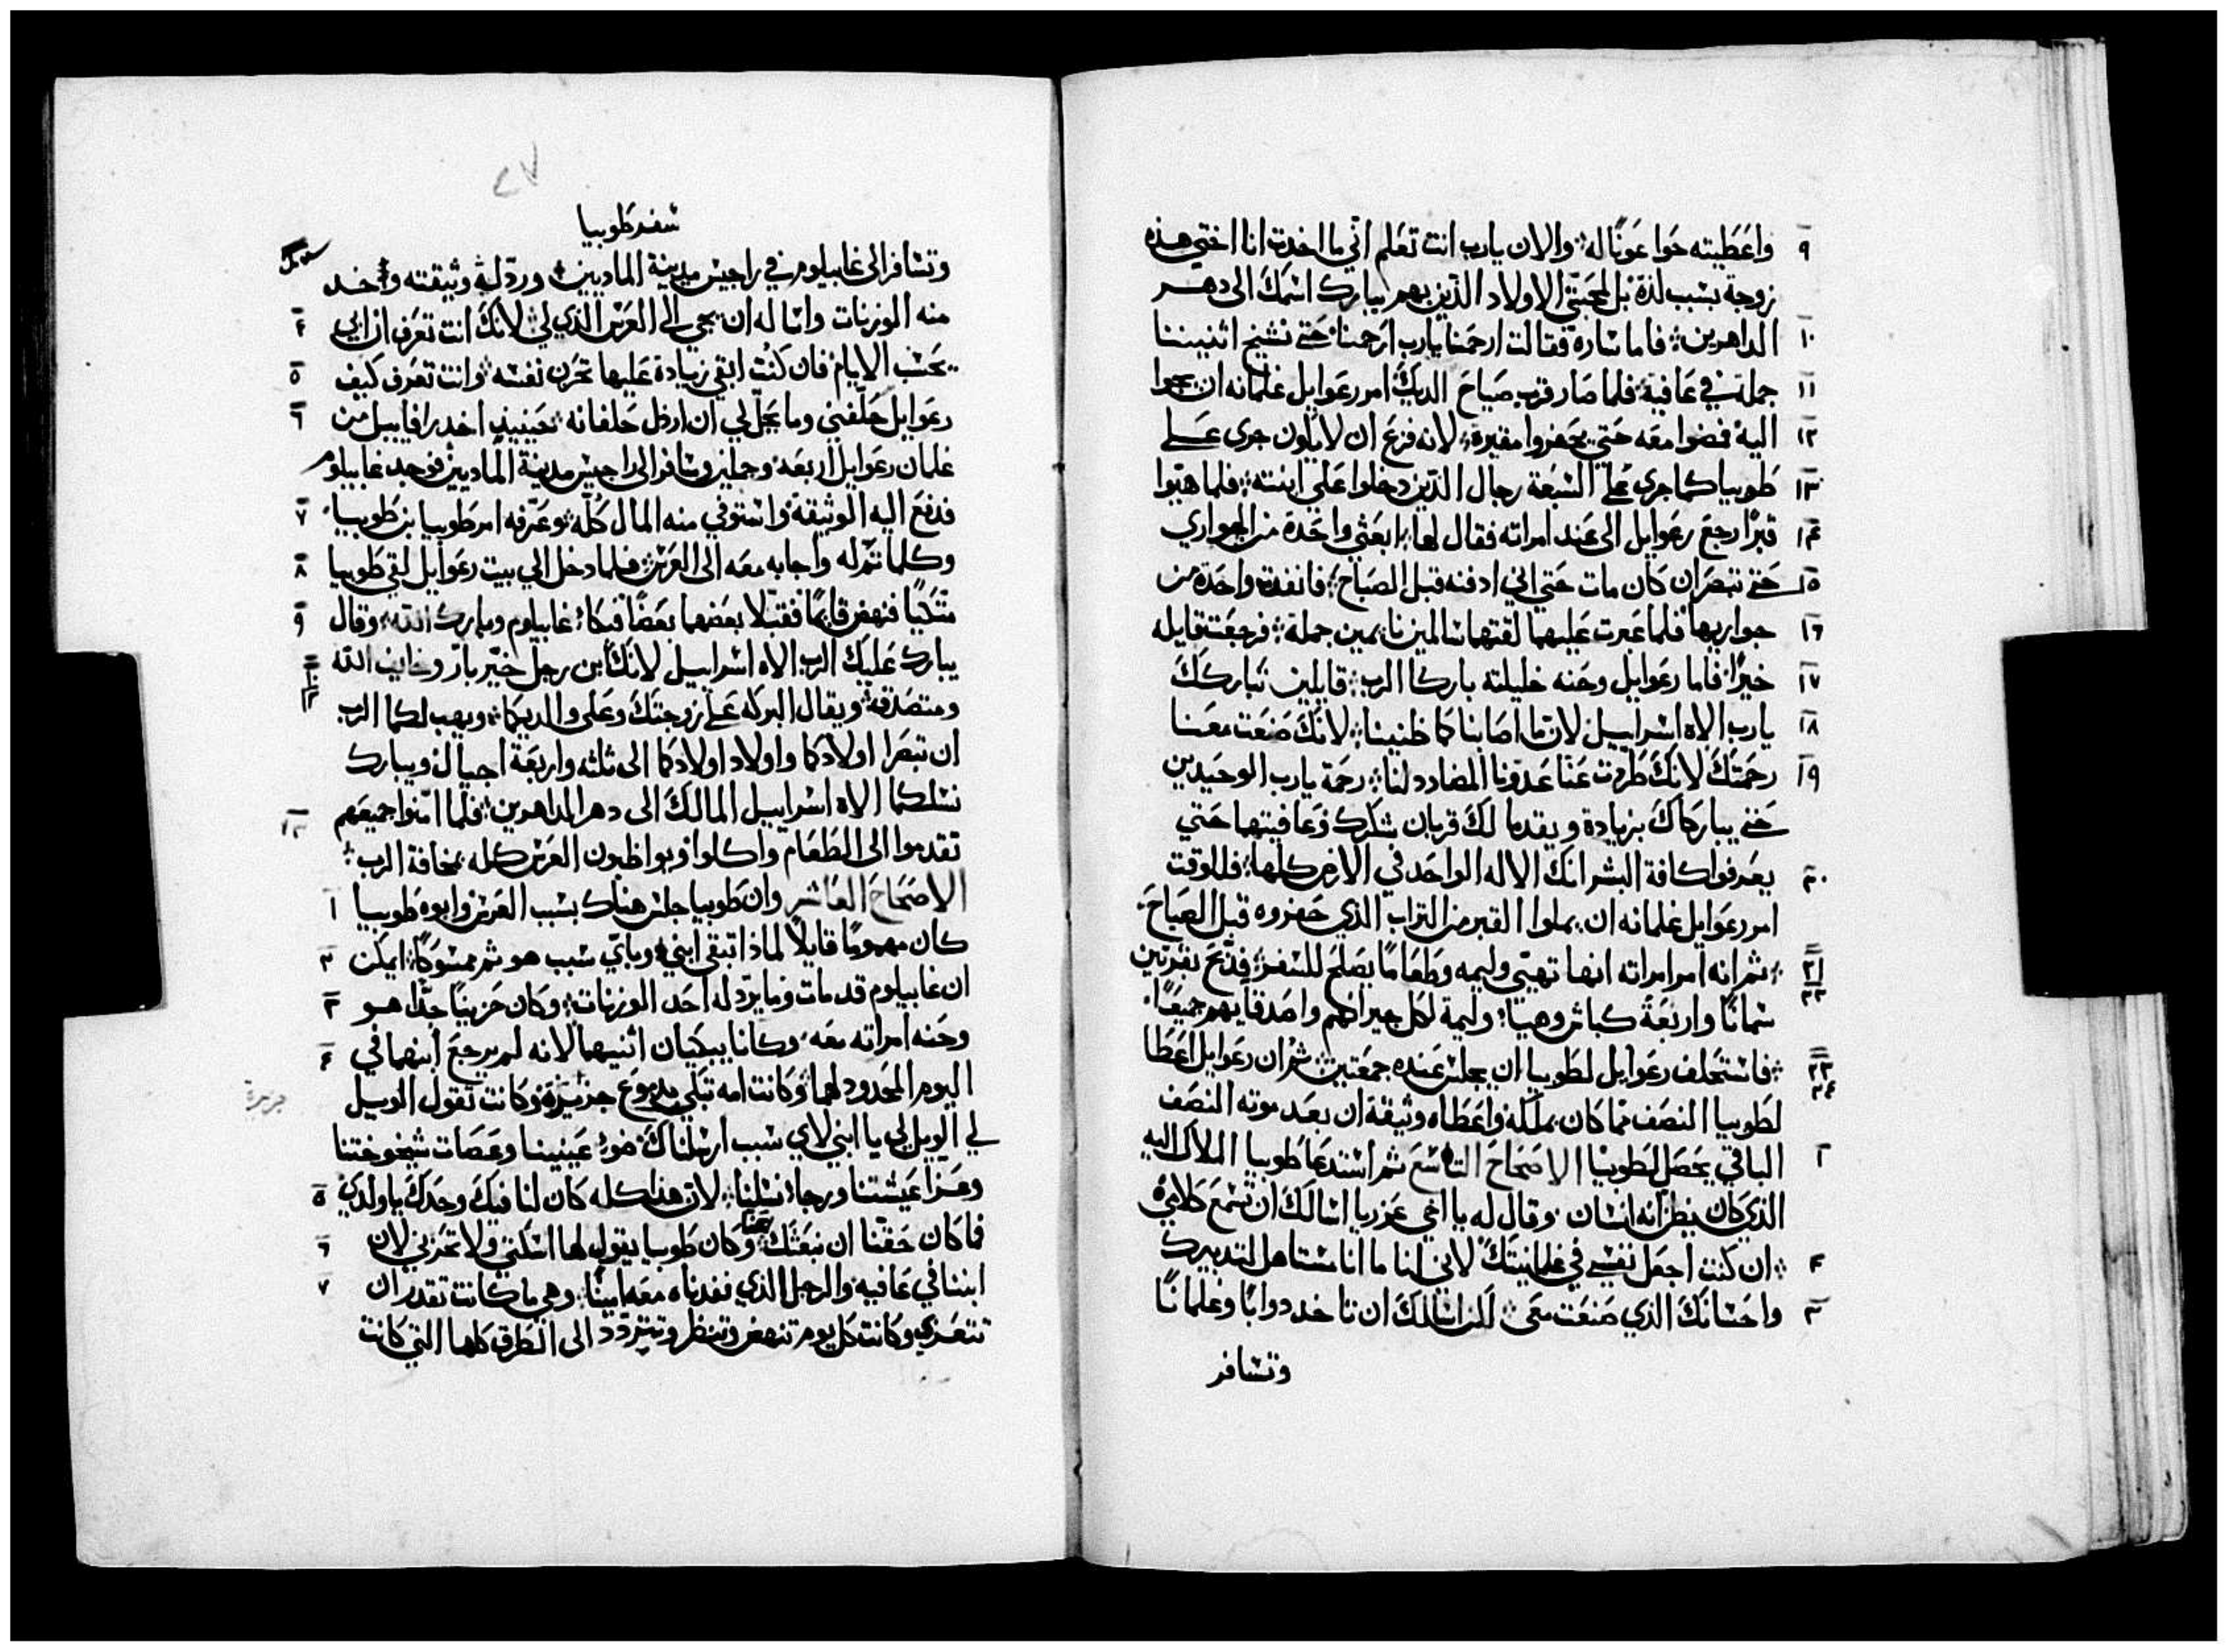 ٩ واعطيته حوا عونًا له؛ والان يارب انت تعلم اني ما اخدت انا اختي هذه
زوجة بسبب لذة بل لمحبتي الاولاد الذين بهم يبارك اسمك الى دهر
١٠ الداهرين؛ فاما ساره فقالت ارحمنا يارب ارحمنا حتي نشيخ اثنيننا
١١ جملة في عافية؛ فلما صار قرب صياح الديك امر رعوايل غلمانه ان يجوا
١٢ اليه فمضوا معه حتي يحفروا مقبرة؛ لانه فزع ان لايكون جري علي
١٣ طوبيا كما جري علي السبعة رجال الذين دخلوا علي ابنته؛ فلما هيوا
١٤ قبرًا رجع رعوايل الى عند امراته فقال لها؛ ابعثي واحدة من الجواري
١٥ حتي تبصر ان كان مات حتي اني ادفنه قبل الصباح؛ فانفدت واحدة من
١٦ جواريها فلما عبرت عليهما لقتهما سالمين نايمين جملة؛ فرجعت قايله
١٧ خيرًا؛ فاما رعوايل وحنه خليلته باركا الرب؛ قايلين نباركك
١٨ يارب الاه اسراييل لان ما اصابنا كما ظنينا؛ لانك صنعت معنا
١٩ رحمتك لانك طردت عنا عدونا المضادد لنا؛ رحمة يارب الوحيدين
حتي يباركاك بزيادة ويقدما لك قربان شكرك وعافيتهما حتي
٢٠ يعرفوا كافة البشر انك الاله الواحد في الارض كلها؛ فللوقت
امر رعوايل غلمانه ان يملوا القبر من التراب الذي حفروه قبل الصباح
٢١ ؛ ثم انه امر امراته انها تهيي وليمه وطعامًا يصلح للسفر؛ فدبح بقرتين
٢٢ سمانًا واربعة كباش وهيا؛ وليمة لكل جيرانهم واصدقايهم جميعًا
٢٣ ؛ فاستحلف رعوايل لطوبيا ان يجلس عنده جمعتين؛ ثم ان رعوايل اعطا
٢٤ لطوبيا النصف مما كان يملكه واعطاه وثيقة ان بعد موته النصف
١ الباقي يحصل لطوبيا الاصحاح التاسع ثم استدعا طوبيا الملاك اليه
الذي كان يظن انه انسان وقال له يا اخي عزريا اسالك ان تسمع كلامي
٢ ؛ ان كنت اجعل نفسي في غلمانيتك لاني انا ما انا مستاهل لتدبيرك
٣ واحسانك الذي صنعت معي؛ لكن اسالك ان تاخد دوابًا وغلمانًا
وتسافر
٢٧
سفر طوبيا
وتسافر الى غابيلوم في راجيس مدينة الماديين؛ ورد ليه وثيقته وخد
منه الوزنات واساله ان يجي الي العرس الذي لي؛ لانك انت تعرف ان ابي ٤
يحسب الايام فان كنت ابقي زيادة عليها تحزن نفسه؛ وانت تعرف كيف ٥
رعوايل حلفني وما يحل لي ان ارذل حلفانه؛ حينيذ اخد رافاييل من ٦
غلمان رعوايل اربعه وجملين وسافر الى راجيس مدينة الماديين فوجد غابيلوم
فدفع اليه الوثيقة واستوفي منه المال كله؛ وعرفه امر طوبيا بن طوبيا ٧
وكلما تم له واجابه معه الى العرس؛ فلما دخل الي بيت رعوايل لقي طوبيا ٨
متكيًا فنهض قايمًا فقبلا بعضهما بعضًا فبكا غابيلوم وبارك الله؛ وقال ٩
يبارك عليك الرب الاه اسراييل لانك ابن رجل خير بار وخايف الله ١٠
ومتصدق؛ ويقال البركه علي زوجتك وعلي والديكما؛ ويهب لكما الرب ١١
ان تبصرا اولادكما واولاد اولادكما الى ثلثه واربعة اجيال ويبارك
نسلكما الاه اسراييل المالك الى دهر الداهرين؛ فلما امنوا جميعهم ١٢
تقدموا الى الطعام واكلوا ويواظبون العرس كله بمخافة الرب؛
الاصحاح العاشر وان طوبيا جلس هناك بسبب العرس وابوه طوبيا ١
كان مهمومًا قايلًا لماذا تبقي ابني؛ وباي سبب هو ثم ممسوكًا؛ ايمكن ٢
ان غابيلوم قد مات وما يرد له احد الوزنات؛ وكان حزينًا جدًا هو ٣
وحنه امراته معه وكانا يبكيان اثنيهما لانه لم يرجع ابنهما في ٤
اليوم المحدود لهما؛ وكانت امه تبكي بدموع جزيرة وكانت تقول الويل
لي الويل لي يا ابني لاي سبب ارسلناك ضوء عينينا وعصات شيخوختنا
وعزا عيشتنا ورجاء نسلنا؛ لان هذا كله كان لنا فيك وحدك ياولدي ٥
فما كان حقنا ان نبعثك عنا وكان طوبيا يقول لها اسكتي ولا تحزني لان ٦
ابننا في عافيه والرجل الذي نفدناه معه امينًا؛ وهي ما كانت تقدر ان ٧
تتعزي وكانت كل يوم تنهض وتنظر وتتردد الى الطرق كلها التي كانت